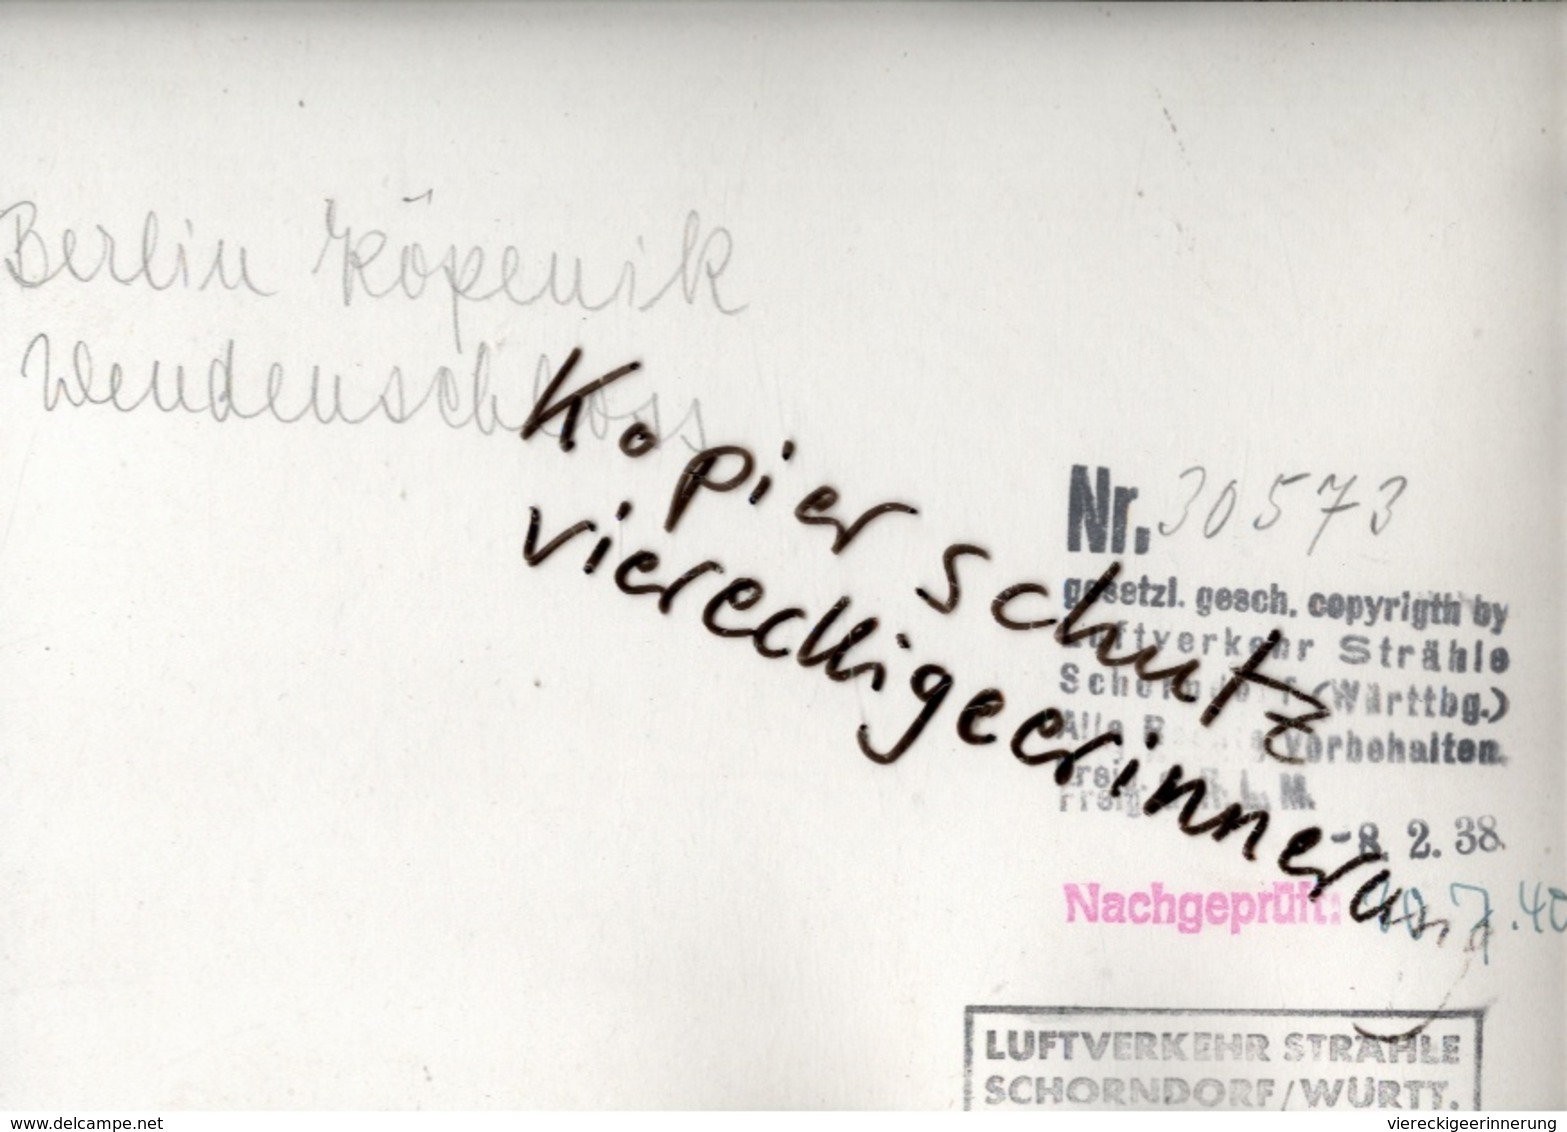 Berlin Köpenik
Wendenschloss
Kopierschutz
viereckigeerinnerung
Nr. 30573
gesetzl. gesch. copyrigth by
Luftverkehr Strähle
Schorndorf (Württbg.)
Alle Rechte vorbehalten.
Freig. R. L. M.
-8. 2. 38
Nachgeprüft: 7.40
LUFTVERKEHR STRÄHLE
SCHORNDORF/WÜRTT.
www.delcampe.net
viereckigeerinnerung